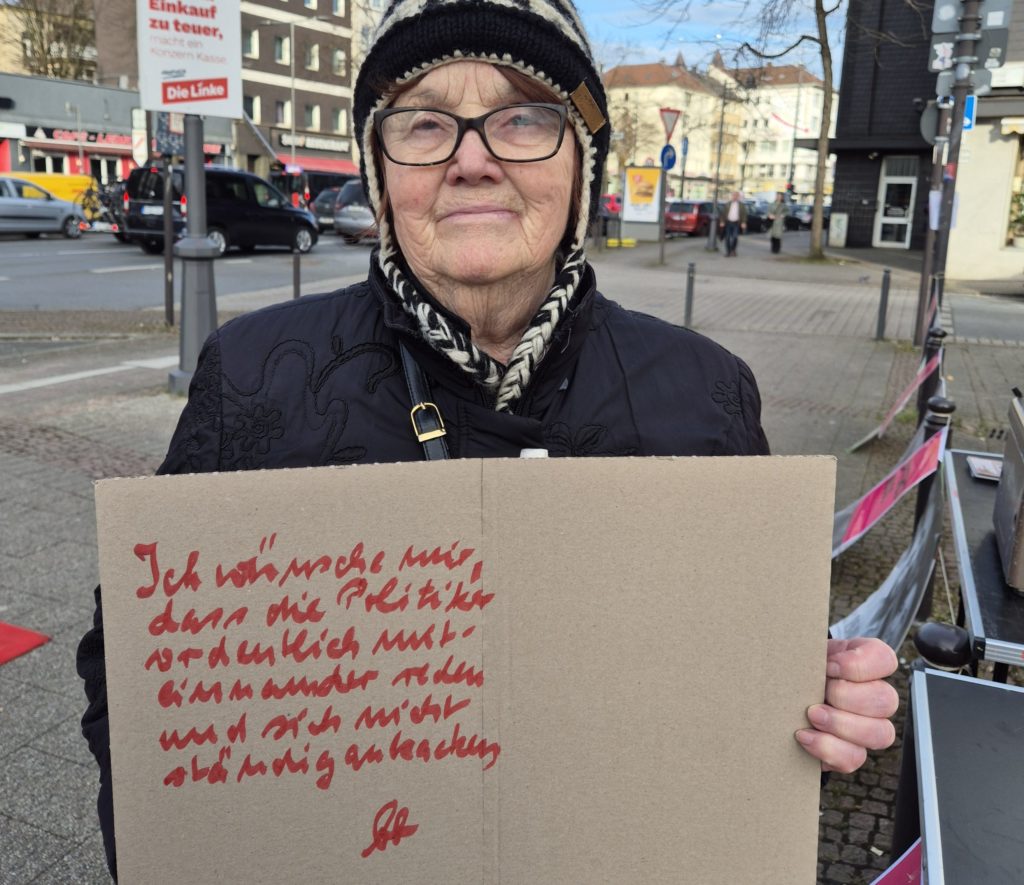 Einkauf
zu teuer,
macht ein
Konzern Kasse.
Die Linke
Ich wünsche mir,
dass die Politiker
ordentlich mit-
einnander reden
und sich nicht
ständig ankacken